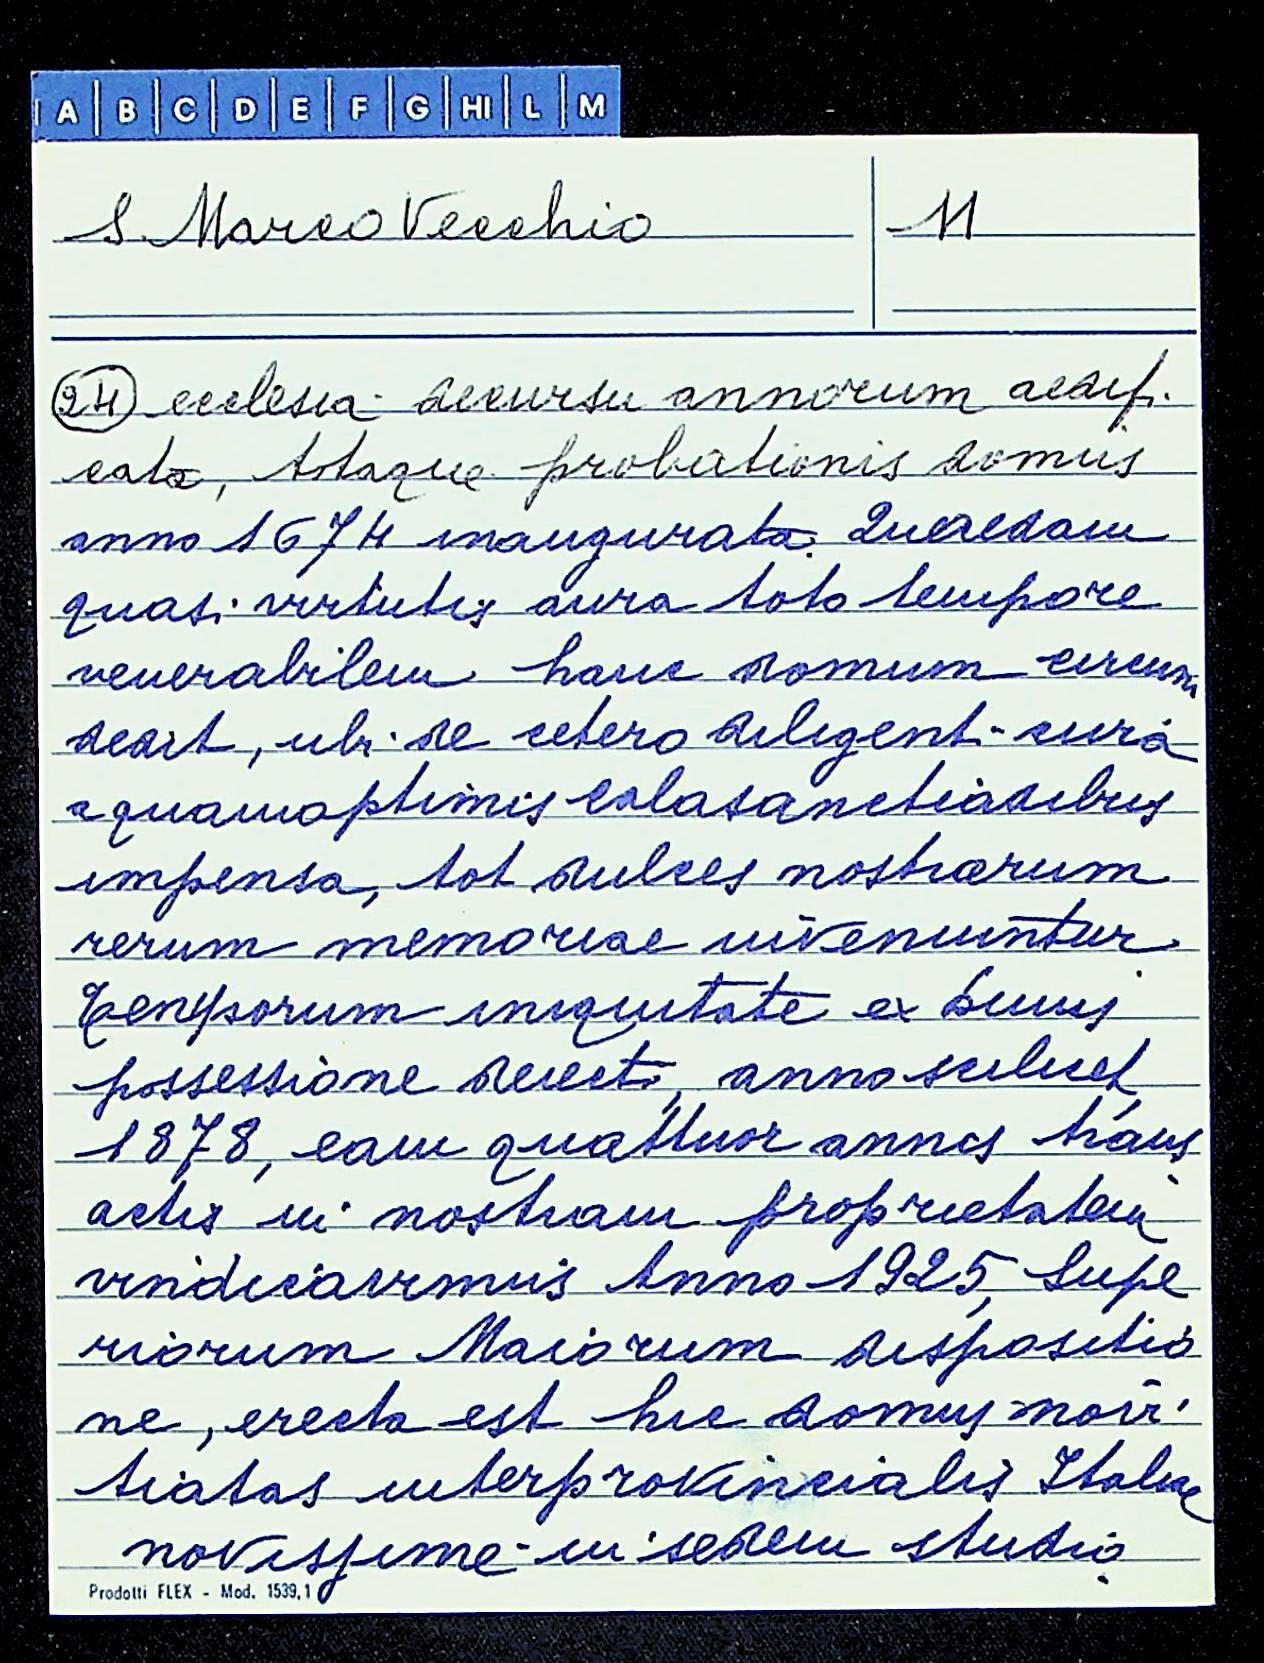 A B C D E F G HI L M
S. Marco Vecchio M
24 ecclesia decursu annorum aedif.
cata, totaque probationis domus
anno 1674 inaugurata. Quaedam
quasi virtutis aura toto tempore
venerabilem hanc domum circum
dedit, ubi de cetero diligenti cura
a quam optimis Calasanctiadibus
impensa, tot dulces nostrarum
rerum memoriae inveniuntur.
Temporum iniquitate ex huius
possessione deiecti, anno scilicet
1878, eam quattuor annos trans
actis in nostram proprietatem
vindicavimus Anno 1925, Supe
riorum Maiorum dispositio
ne, erecta est hic domus novi
tiatus interprovincialis Italiae
novissime in sedem studio
Prodotti FLEX - Mod. 1539,1